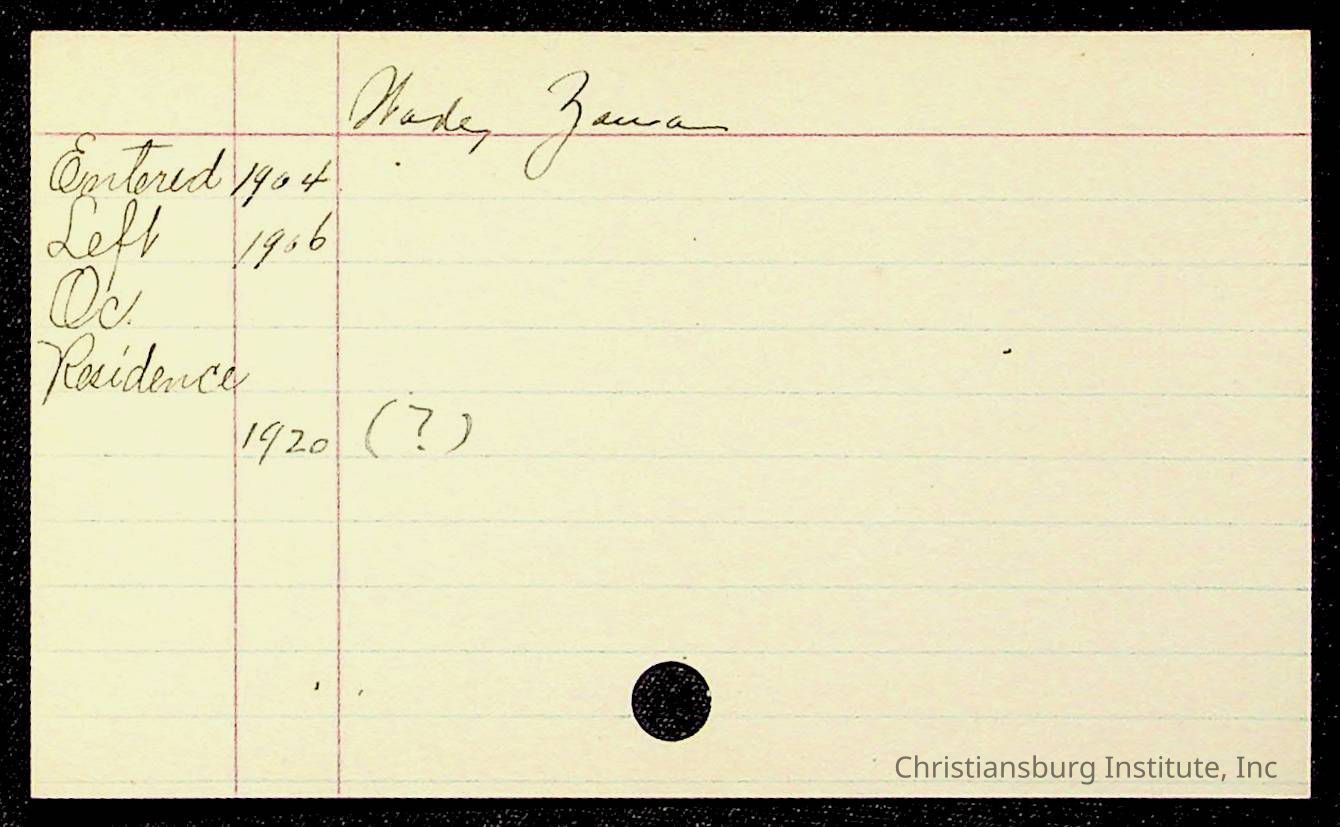 Wade, Zama
Entered 1904
Left 1906
Oc.
Residence
1920 (?)
Christiansburg Institute, Inc